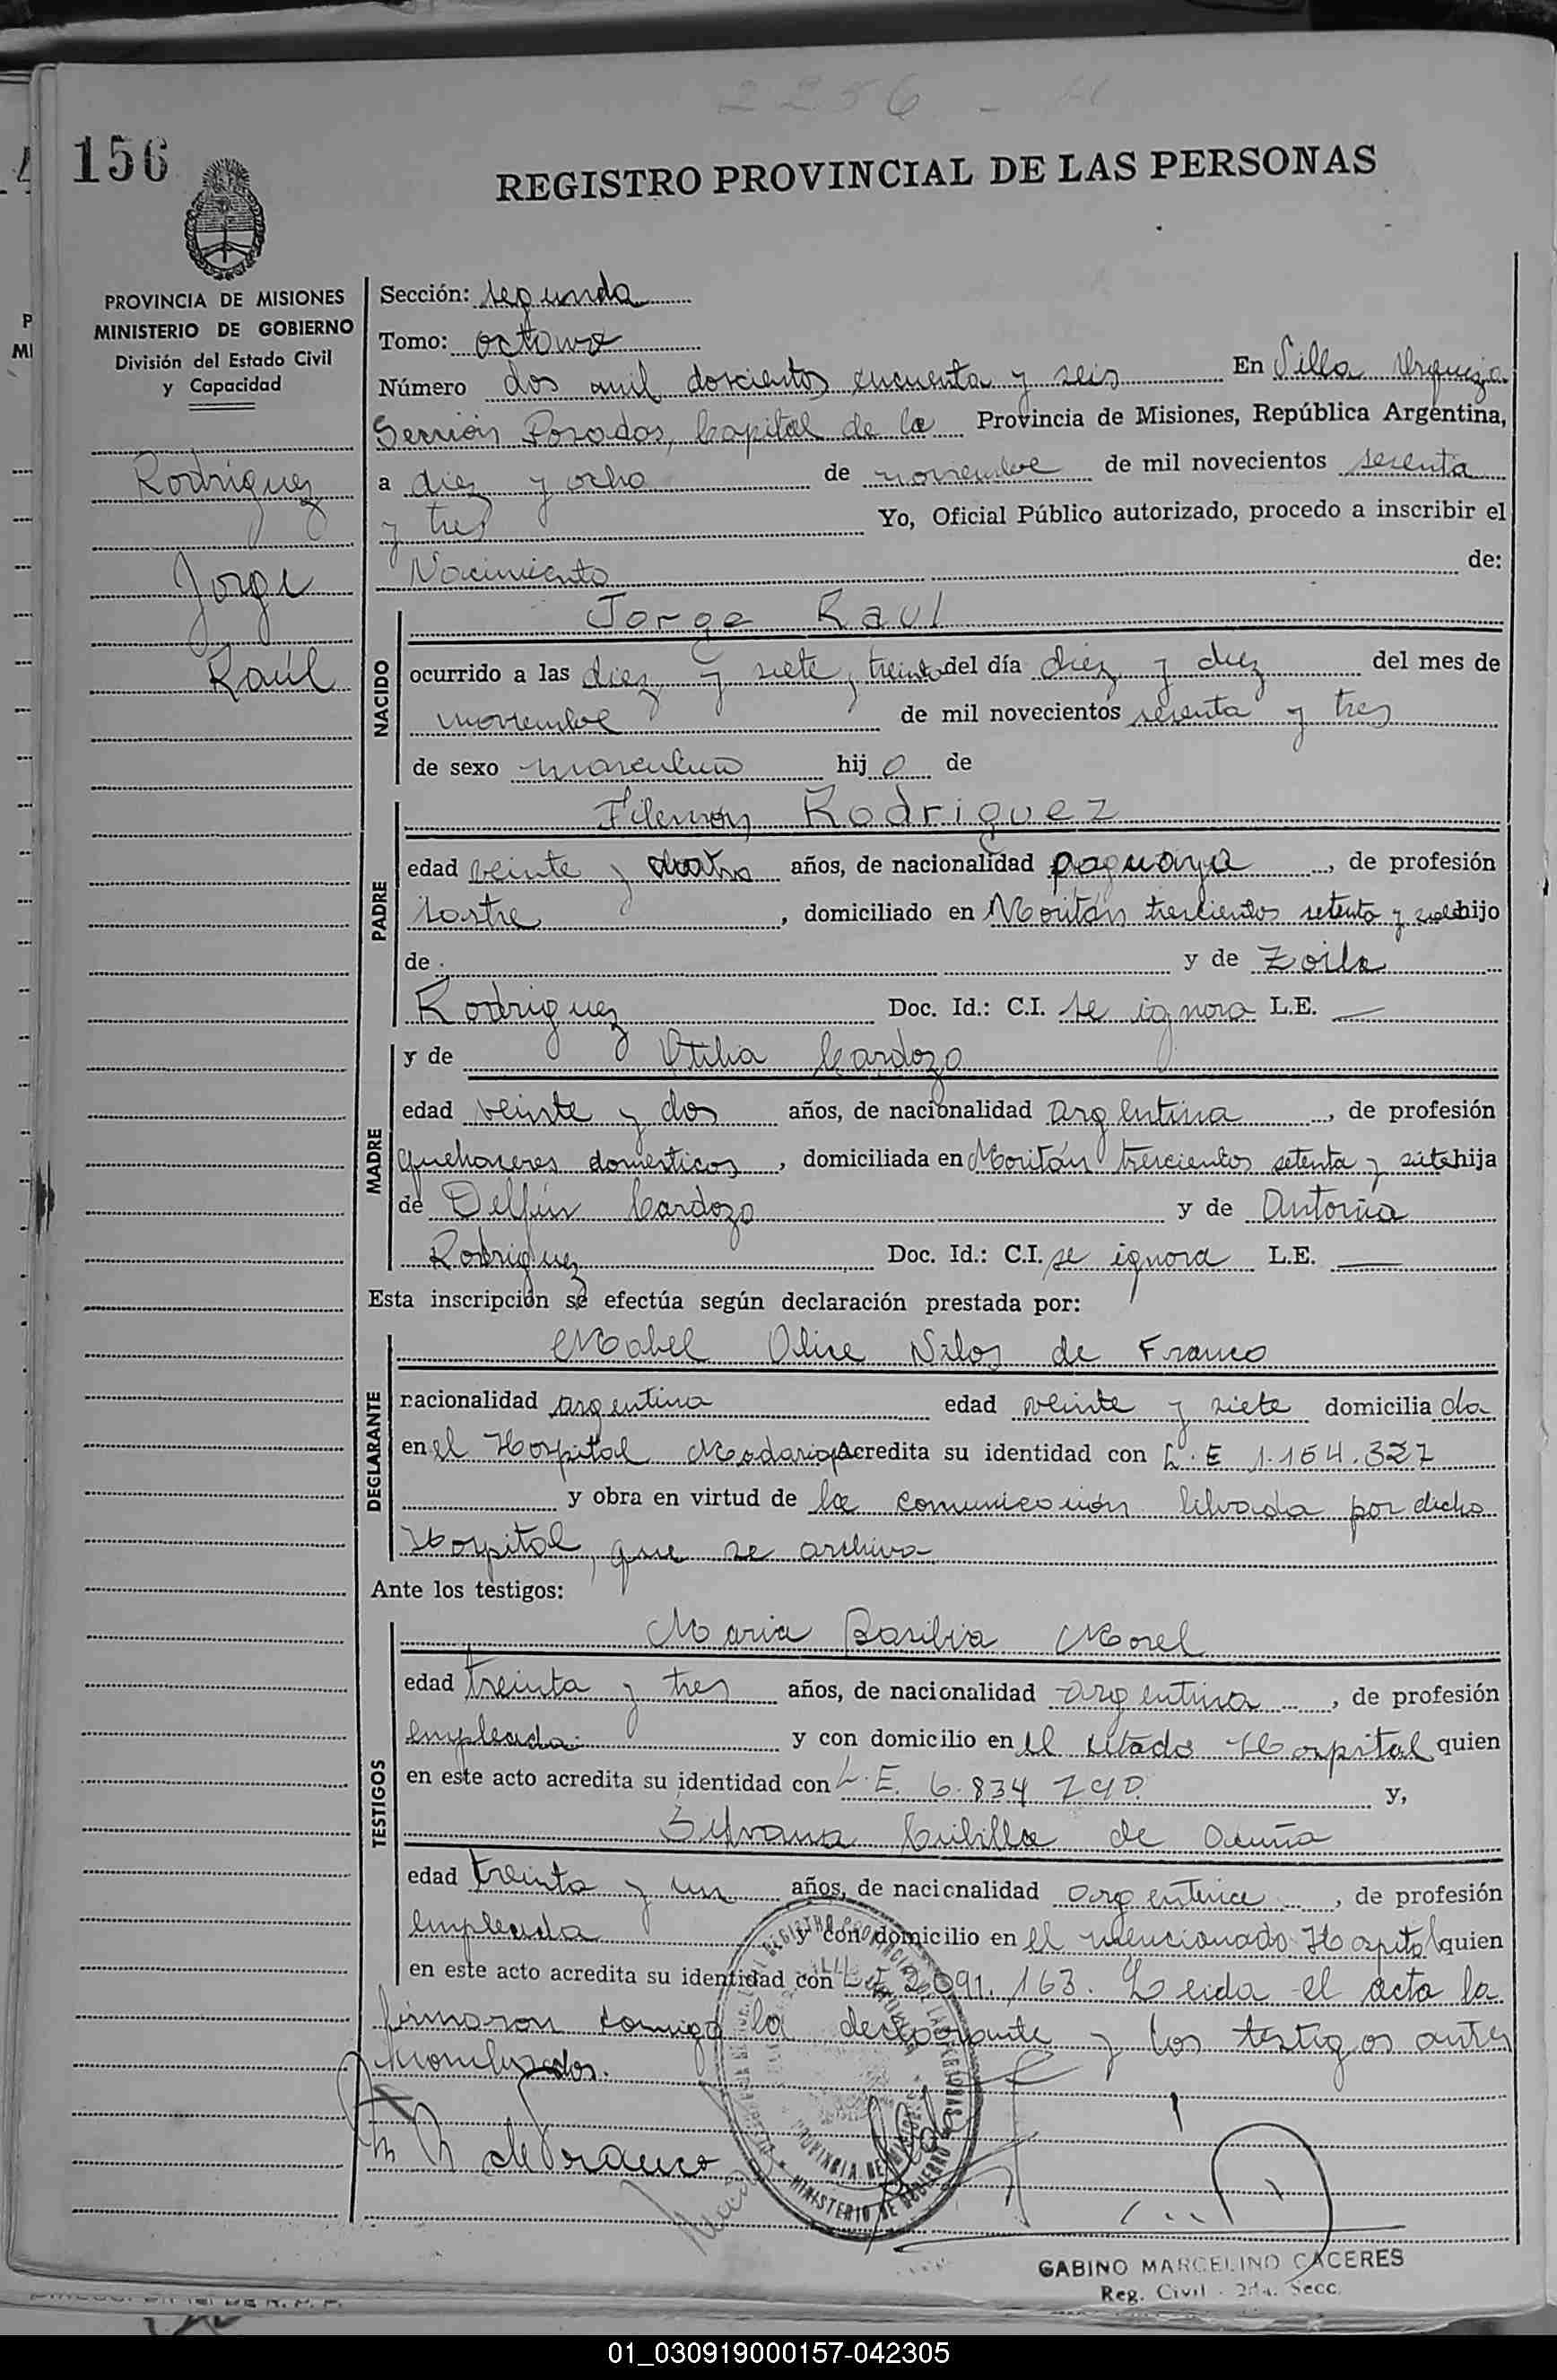 2256
156
REGISTRO PROVINCIAL DE LAS PERSONAS
PROVINCIA DE MISIONES
MINISTERIO DE GOBIERNO
División del Estado Civil
y Capacidad
Rodriguez
Jorge
Raúl
Sección: segunda
Tomo: octavo
Número dos mil doscientos cincuenta y seis En Villa Urquiza
Sección Posadas, Capital de la Provincia de Misiones, República Argentina,
a diez y ocho de noviembre de mil novecientos sesenta
y tres Yo, Oficial Público autorizado, procedo a inscribir el
Nacimiento de:
NACIDO
Jorge Raul
ocurrido a las diez y siete, treinta del día diez y diez del mes de
noviembre de mil novecientos sesenta y tres
de sexo masculino hijo de
PADRE
Filemón Rodriguez
edad veinte y cuatro años, de nacionalidad paguaya, de profesión
sastre, domiciliado en Moritán trescientos setenta y siete hijo
de y de Zoila
Rodriguez Doc. Id.: C.I. se ignora L.E. —
MADRE
y de Otilia Cardozo
edad veinte y dos años, de nacionalidad argentina, de profesión
quehaceres domesticos, domiciliada en Moritán trescientos setenta y siete hija
de Delfín Cardozo y de Antonia
Rodriguez Doc. Id.: C.I. se ignora L.E. —
Esta inscripción se efectúa según declaración prestada por:
DECLARANTE
Mabel Olice de Franco
nacionalidad argentina edad veinte y siete domiciliada
en el Hospital Madariaga Acredita su identidad con L.E 1.154.327
y obra en virtud de la comunicación librada por dicho
Hospital, que se archiva
Ante los testigos:
TESTIGOS
Maria Basilia Morel
edad treinta y tres años, de nacionalidad argentina, de profesión
empleada y con domicilio en el citado Hospital quien
en este acto acredita su identidad con L.E. 6.834 790 y,
Silvana Cubilla de Acuña
edad treinta y un años, de nacionalidad argentina, de profesión
empleada y con domicilio en el mencionado Hospital quien
en este acto acredita su identidad con 2.091.163. Leida el acta la
firmaron conmigo la declarante y los testigos antes
nombrados.
de Franco
REGISTRO PROVINCIAL DE LAS PERSONAS
PROVINCIA DE
MINISTERIO DE GOBIERNO
GABINO MARCELINO CACERES
Reg. Civil - 2da. Secc.
01_030919000157-042305